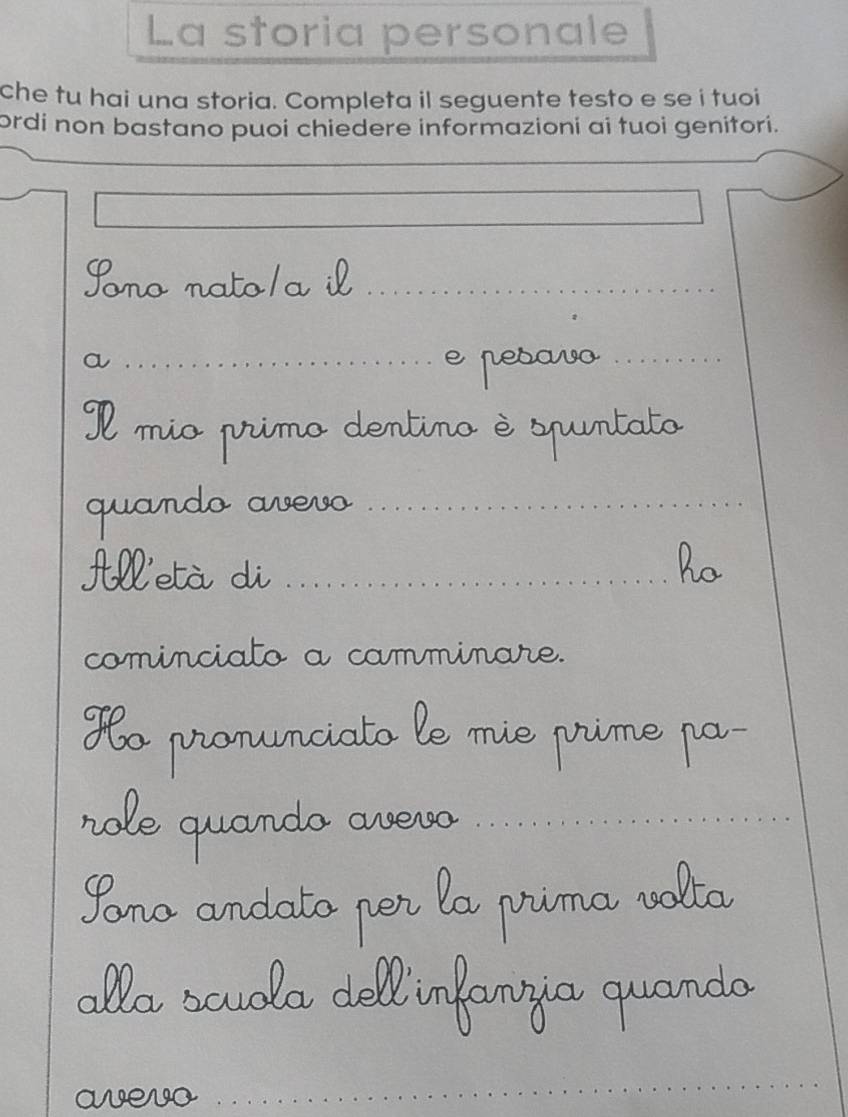 La storia personale
che tu hai una storia. Completa il seguente testo e se i tuoi
ordi non bastano puoi chiedere informazioni ai tuoi genitori.
Sono nato/a il ....................
a .................... e pesavo .........
Il mio primo dentino è spuntato
quando avevo ....................
All'età di .................... ho
cominciato a camminare.
Ho pronunciato le mie prime pa-
role quando avevo ....................
Sono andato per la prima volta
alla scuola dell'infanzia quando
avevo ....................